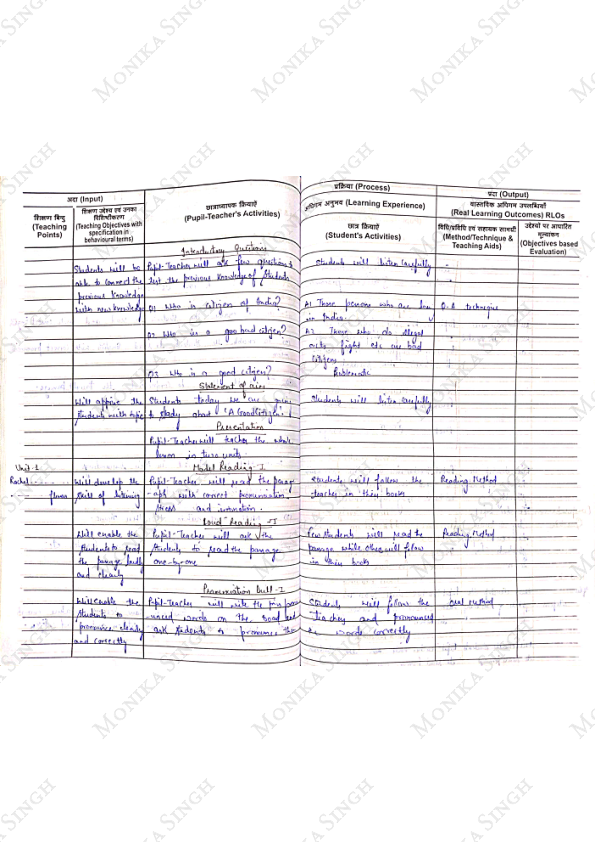 अदा (Input)
प्रक्रिया (Process)
प्रदा (Output)
शिक्षण बिन्दु
(Teaching
Points)
शिक्षण उद्देश्य एवं उनका
विशिष्टीकरण
(Teaching Objectives with
specification in
behavioural terms)
छात्राध्यापक क्रियाऐं
(Pupil-Teacher's Activities)
अधिगम अनुभव (Learning Experience)
छात्र क्रियाऐं
(Student's Activities)
वास्तविक अधिगम उपलब्धियाँ
(Real Learning Outcomes) RLOs
विधि/प्रविधि एवं सहायक सामग्री
(Method/Technique &
Teaching Aids)
उद्देश्यों पर आधारित
मूल्यांकन
(Objectives based
Evaluation)
Introductory Questions
Students will be
able to connect the
previous knowledge
with new knowledge
Pupil-Teacher will ask few questions to
test the previous knowledge of students
Q1 Who is citizen of India?
Q2 Who is a bad citizen?
Q3 Who is a good citizen?
Students will listen carefully
A1 Those persons who are
in India.
A2 Those who do illegal
acts, fight etc are bad
citizens
Problematic
Q.A technique
Statement of aim
Will the
students with topic
Students today we are going
to study about 'A Good Citizen'
Students will listen carefully
Presentation
Pupil-Teacher will teacher the whole
lesson in two units.
Unit-1
Model Reading I
Will develop the
skill of listening
Pupil-Teacher will read the parag
-aph with correct pronunciation
stress and intonation.
Students will follow the
teacher in their books
Reading Method
Loud Reading-I
Will enable the
students to read
the passage loudly
and clearly
Pupil-Teacher will ask the
students to read the passage
one-by-one
Few students will read the
passage while other will follow
in their books
Reading Method
Pronunciation Drill-I
Will enable the
students to
pronounce clearly
and correctly
Pupil-Teacher will write the
words on the board and
ask students to pronounce the
Students will follow the
teacher and pronounced
words correctly
oral method
MONIKA SINGH